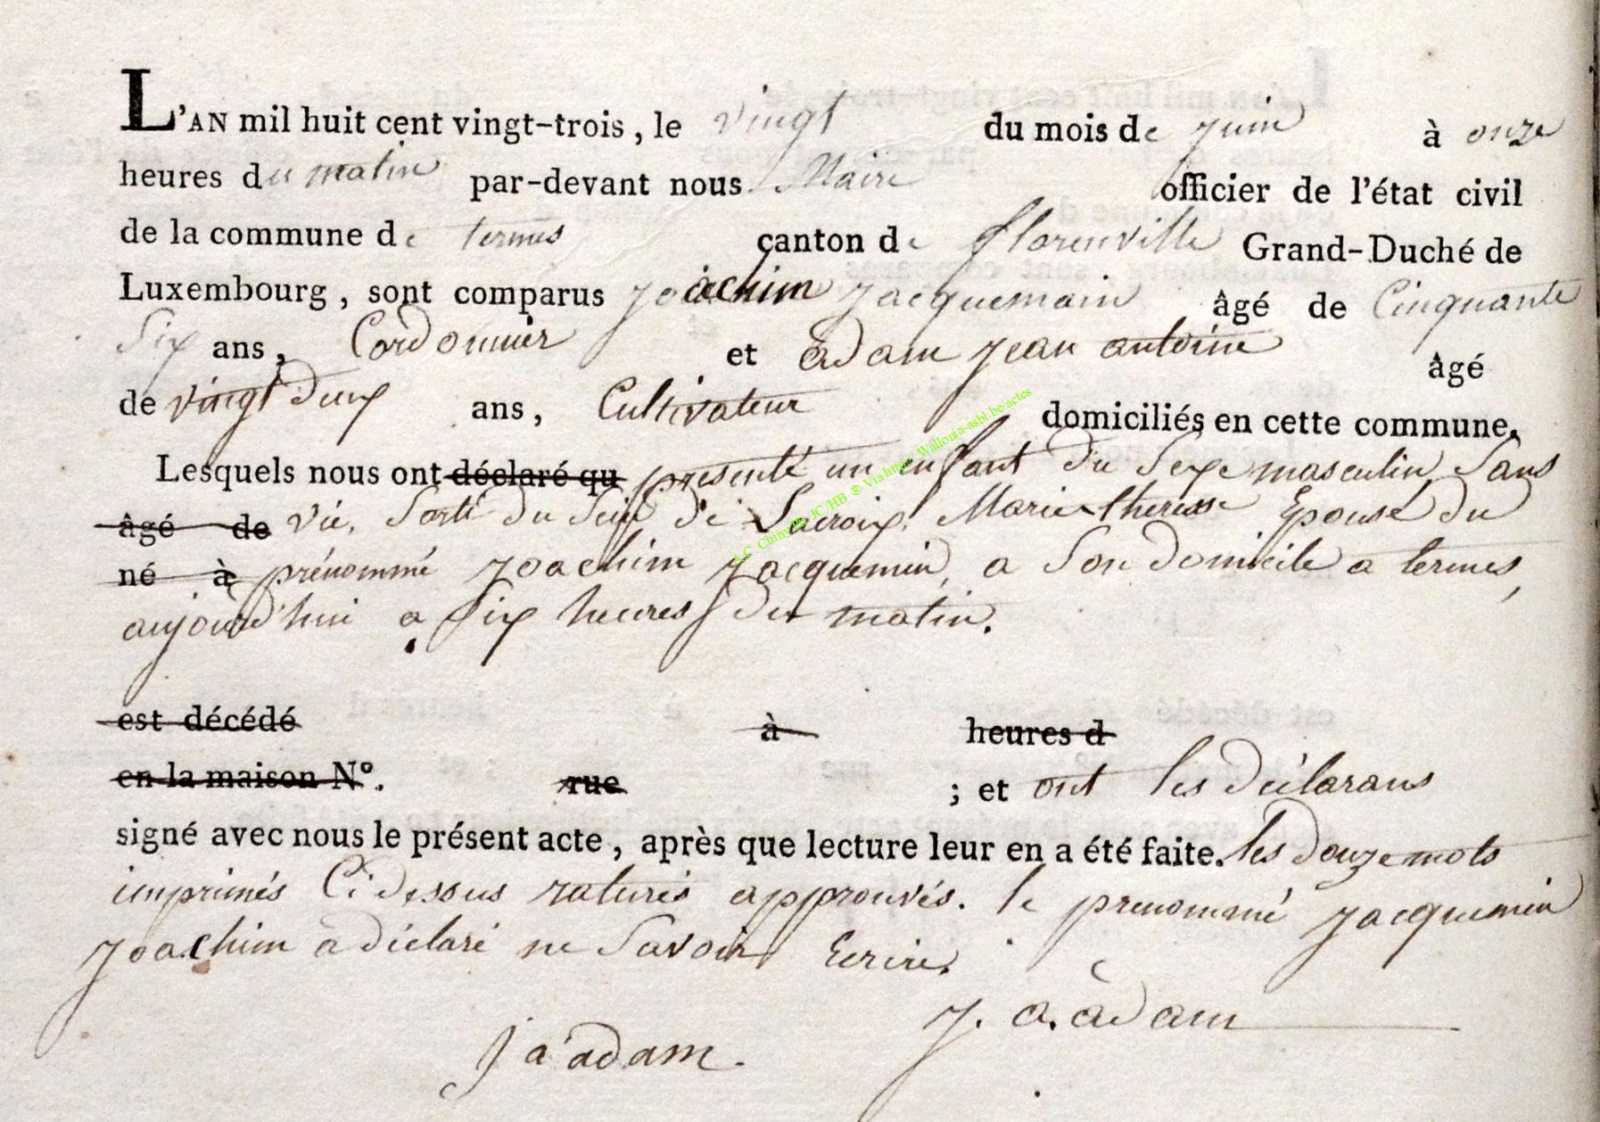 L'AN mil huit cent vingt-trois, le vingt du mois de juin à onze
heures du matin par-devant nous Maire officier de l'état civil
de la commune de termes canton de florenville Grand-Duché de
Luxembourg, sont comparus joachim jacquemain âgé de Cinquante
Six ans, Cordonnier et adam jean antoine âgé
de vingt deux ans, Cultivateur domiciliés en cette commune.
Lesquels nous ont déclaré qu présenté un enfant du Sexe masculin, Sans
âgé de vie, Sorti du Sein de Lacroix, Marie therese Epouse du
né à prénommé joachim jacquemin, a Son domicile a termes,
aujourd'hui a Six heures du matin.
est décédé à heures d
en la maison N°. rue ; et ont les déclarans
signé avec nous le présent acte, après que lecture leur en a été faite. les douze mots
imprimés Ci dessus raturés approuvés. le prenommé jacquemin
joachim a déclaré ne Savoir Ecrire.
j. a. adam
j a adam.